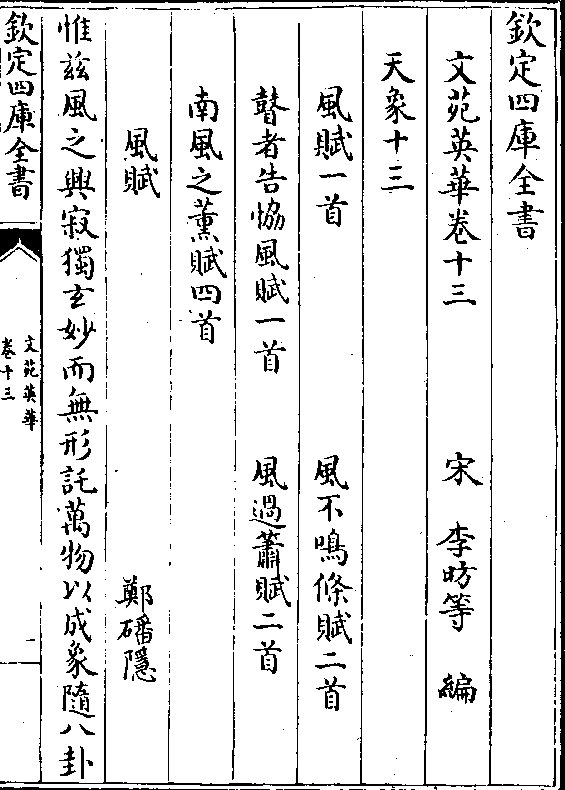 欽定四庫全書
文苑英華卷十三
宋 李昉等 編
天象十三
風賦一首 風不鳴條賦二首
瞽者告恊風賦一首 風過簫賦二首
南風之薰賦四首
風賦 鄭磻隱
惟兹風之興寂獨玄妙而無形託萬物以成象隨八卦
欽定四庫全書
文苑英華
卷十三
一